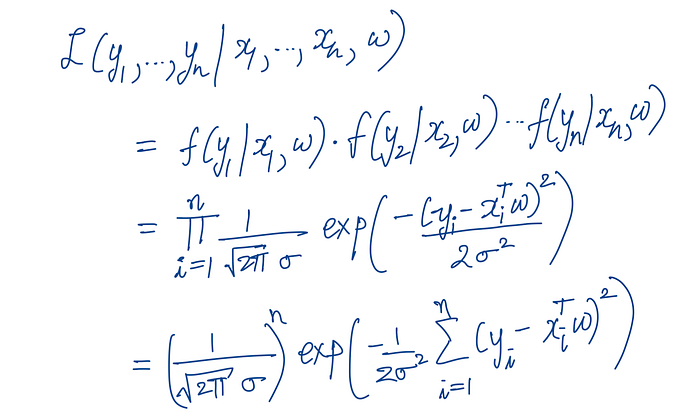 ℒ(y₁,...,yₙ | x₁,...,xₙ, ω)
= f(y₁|x₁, ω) · f(y₂|x₂, ω) ··· f(yₙ|xₙ, ω)
= ∏ᵢ₌₁ⁿ 1/(√(2π) σ) exp(−(yᵢ − xᵢᵀω)² / 2σ²)
= (1/(√(2π) σ))ⁿ exp(−1/2σ² ∑ᵢ₌₁ⁿ (yᵢ − xᵢᵀω)²)